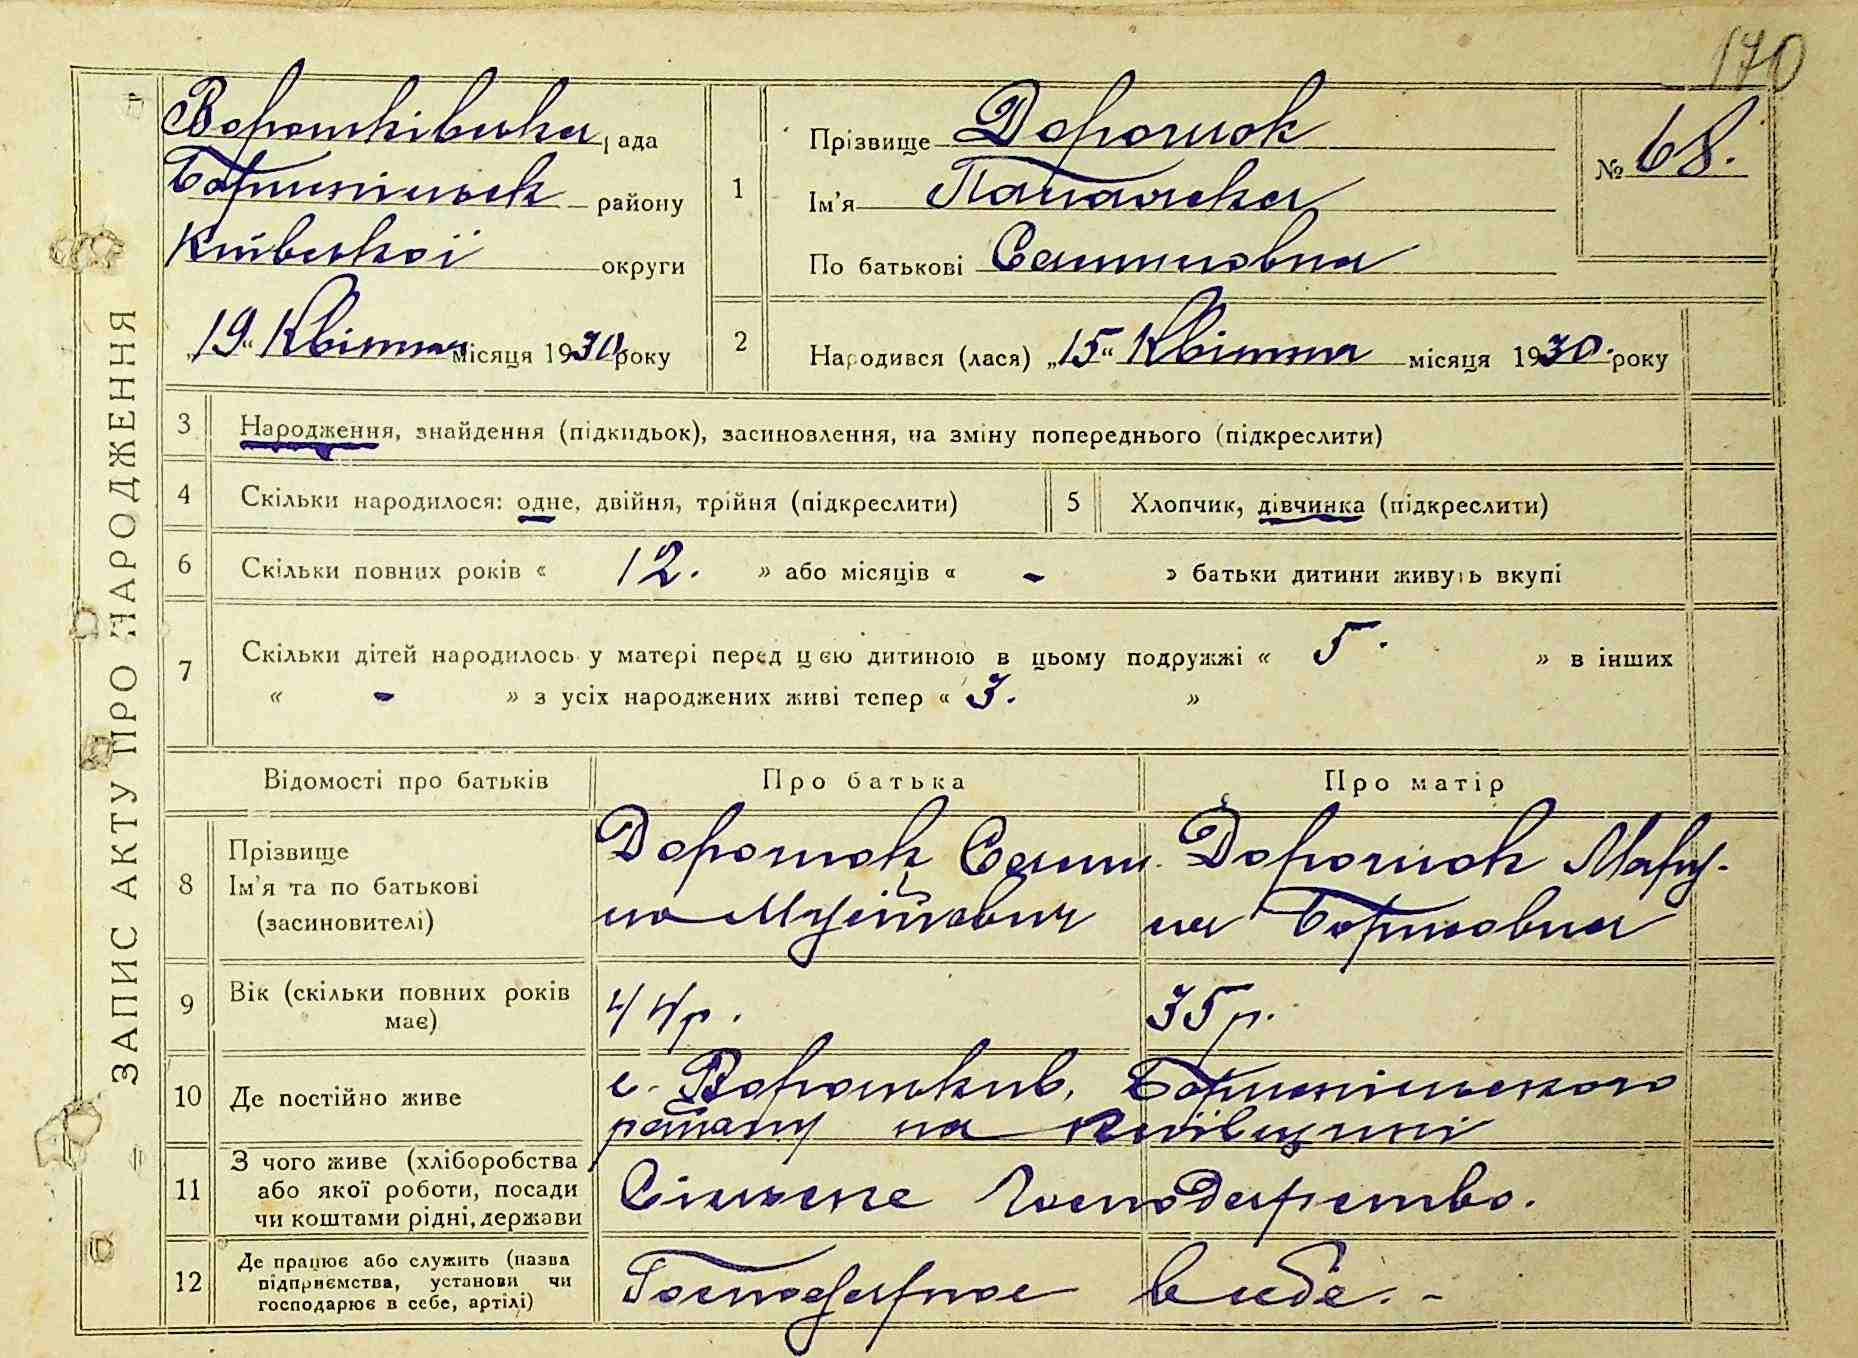 170
ЗАПИС АКТУ ПРО НАРОДЖЕННЯ
Воротьківська рада
Бориспільськ району
Київської округи
„19“ Квітня місяця 1930 року
1
Прізвище Дорошок
Ім'я Параска
По батькові Самповна
№ 68.
2
Народився (лася) „15“ Квітня місяця 1930. року
3 Народження, знайдення (підкидьок), засиновлення, на зміну попереднього (підкреслити)
4 Скільки народилося: одне, двійня, трійня (підкреслити)
5 Хлопчик, дівчинка (підкреслити)
6 Скільки повних років « 12. » або місяців « - » батьки дитини живуть вкупі
7 Скільки дітей народилось у матері перед цією дитиною в цьому подружжі « 5. » в інших
« - » з усіх народжених живі тепер « 3. »
Відомості про батьків Про батька Про матір
8 Прізвище
Ім'я та по батькові
(засиновителі)
Дорошок
Мусійович
Дорошок Мару-
на Борисовна
9 Вік (скільки повних років має)
44 р. 35 р.
10 Де постійно живе
с. Вороньків, Бориспільського
району на Київщині
11 З чого живе (хліборобства
або якої роботи, посади
чи коштами рідні, держави
Сільське Господарство.
12 Де працює або служить (назва
підприємства, установи чи
господарює в себе, артілі)
Господарює в себе. -